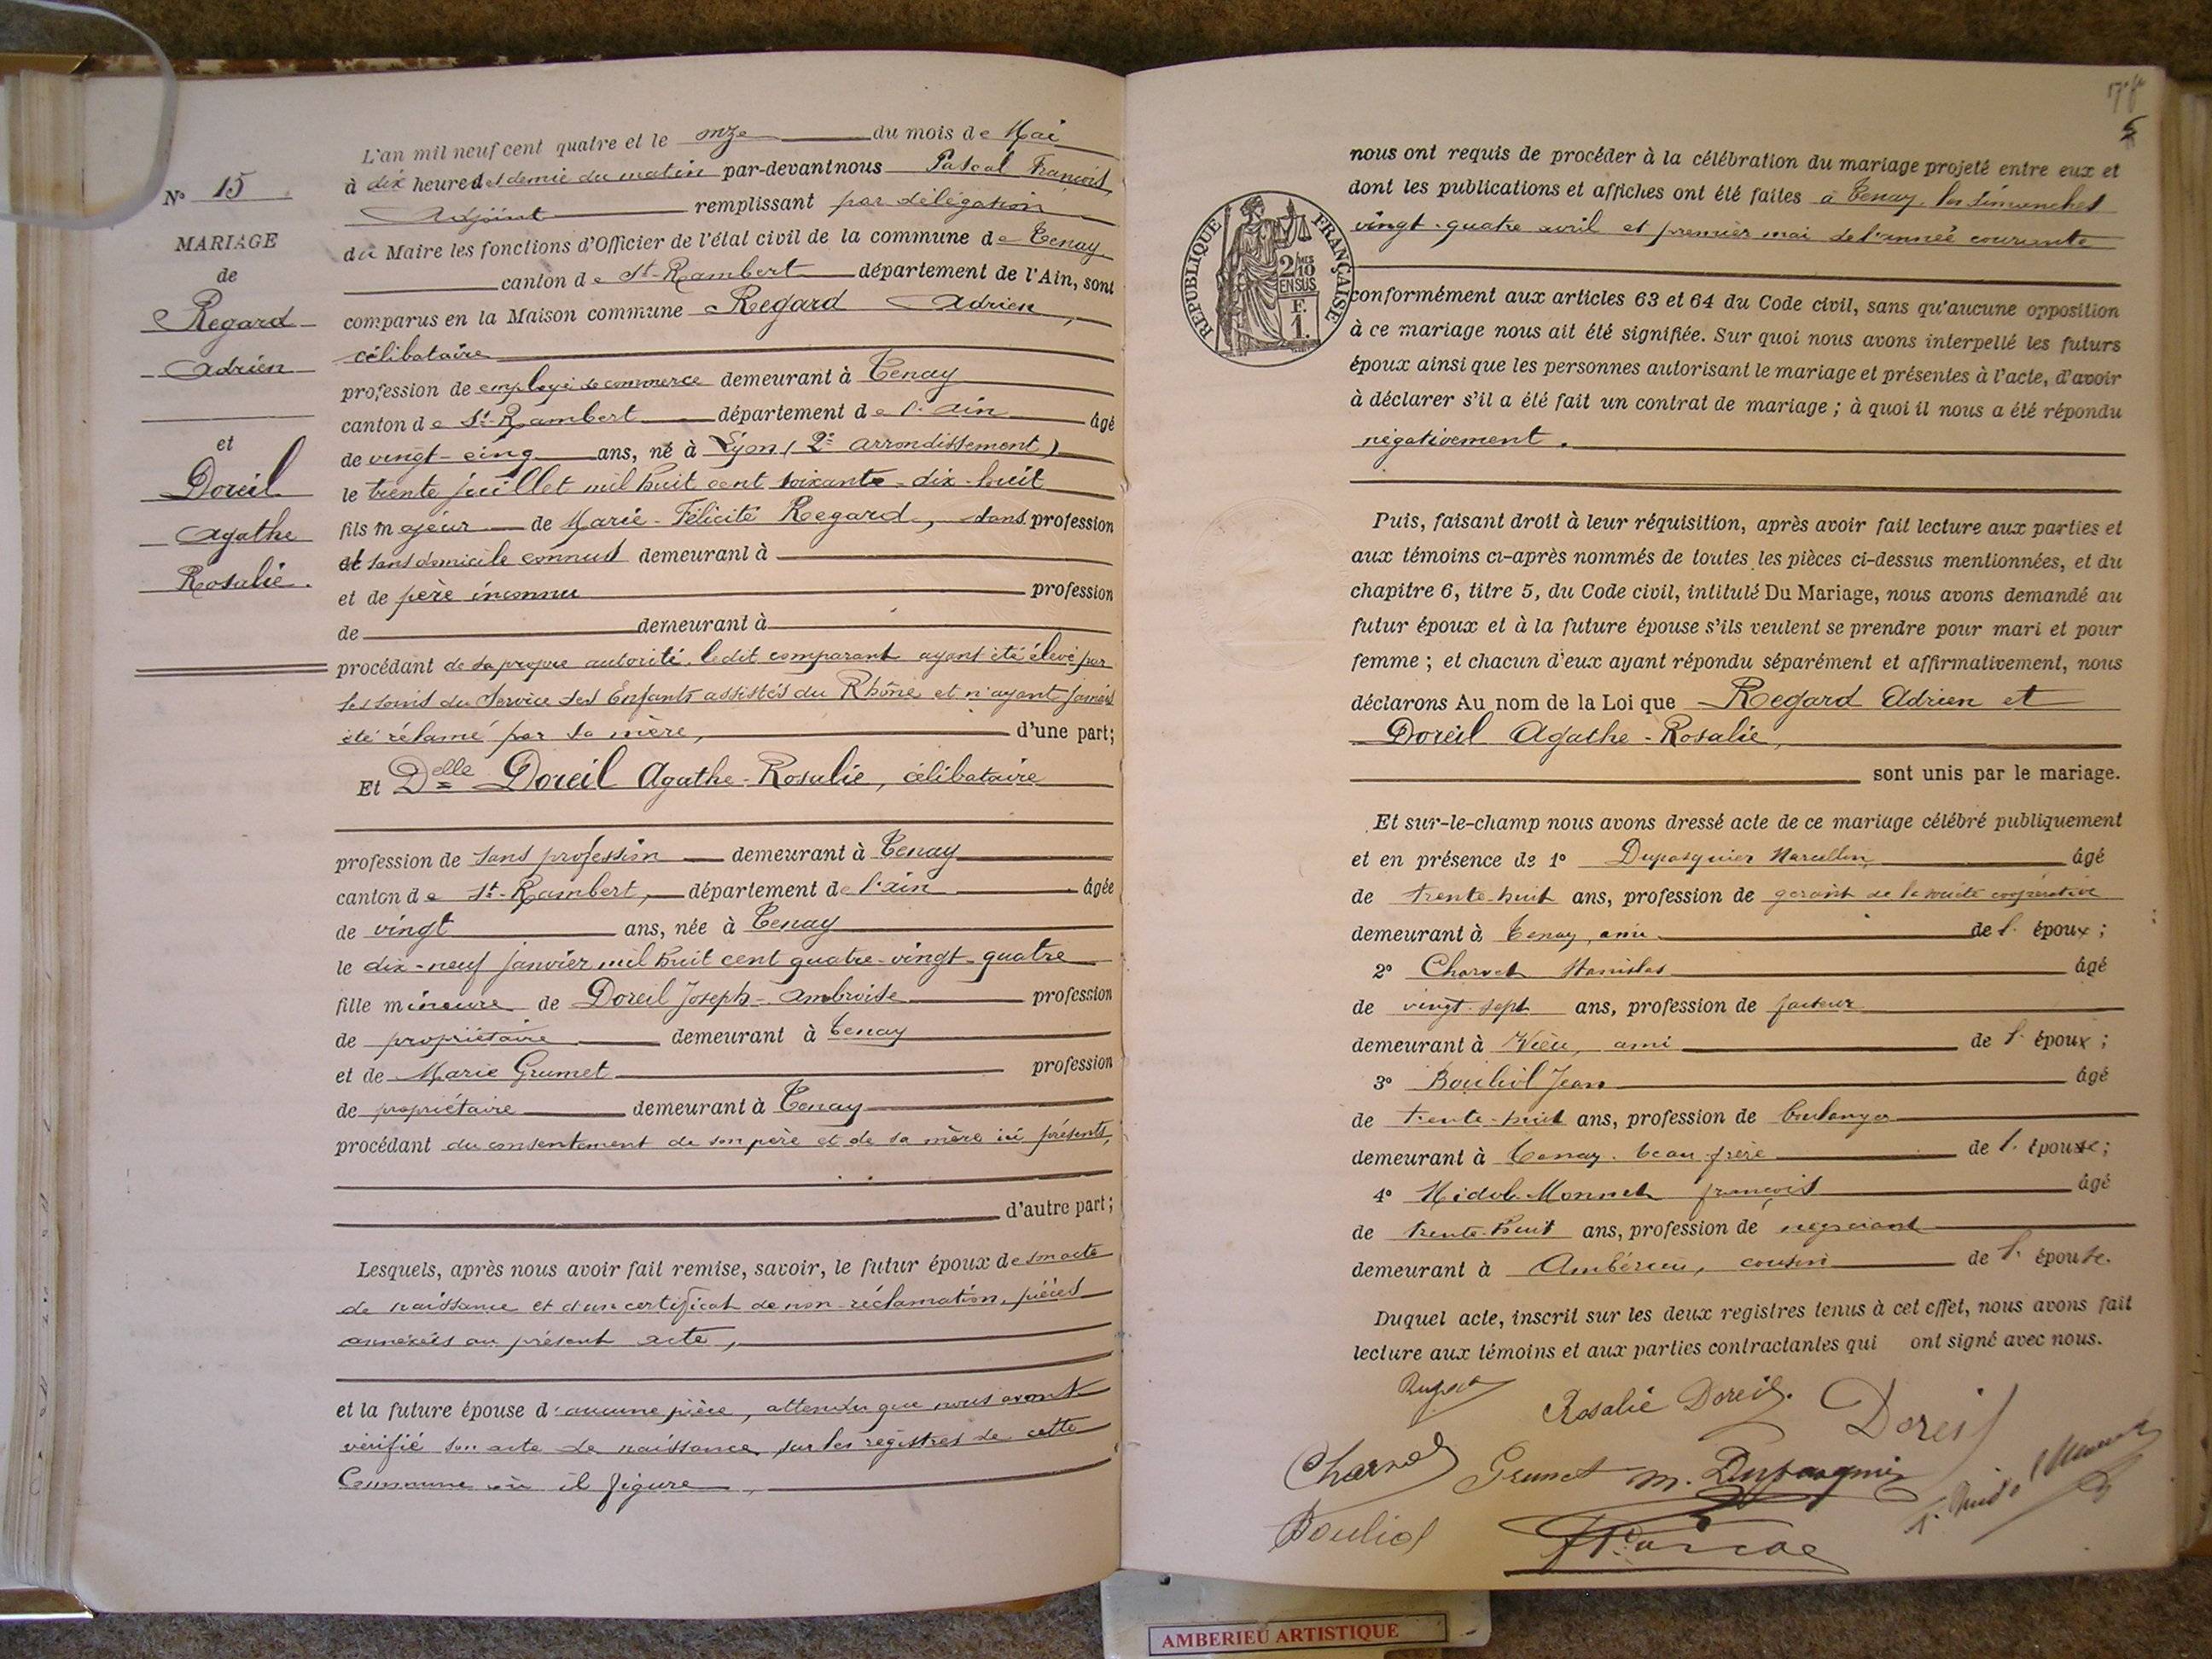 N° 15
MARIAGE
de
Regard
Adrien
et
Doreil
Agathe
Rosalie.
L'an mil neuf cent quatre et le onze du mois de Mai
à dix heures et demie du matin par-devant nous Pascal François,
Adjoint remplissant par délégation
du Maire les fonctions d'Officier de l'état civil de la commune de Tenay
canton de St-Rambert département de l'Ain, sont
comparus en la Maison commune Regard Adrien,
célibataire
profession de employé de commerce demeurant à Tenay
canton de St-Rambert département de l'Ain âgé
de vingt-cinq ans, né à Lyon (2e arrondissement)
le trente juillet mil huit cent soixante-dix-huit
fils majeur de Marie-Félicité Regard, sans profession
et sans domicile connus demeurant à
et de père inconnu profession
de demeurant à
procédant de sa propre autorité, ledit comparant ayant été élevé par
les soins du Service des Enfants assistés du Rhône et n'ayant jamais
été réclamé par sa mère, d'une part;
Et Delle Doreil Agathe-Rosalie, célibataire
profession de sans profession demeurant à Tenay
canton de St-Rambert, département de l'Ain âgée
de vingt ans, née à Tenay
le dix-neuf janvier mil huit cent quatre-vingt-quatre
fille mineure de Doreil Joseph-Ambroise profession
de propriétaire demeurant à Tenay
et de Marie Grumet profession
de propriétaire demeurant à Tenay
procédant du consentement de son père et de sa mère ici présents,
d'autre part;
Lesquels, après nous avoir fait remise, savoir, le futur époux de son acte
de naissance et d'un certificat de non-réclamation, pièces
annexées au présent acte,
et la future épouse d'aucune pièce, attendu que nous avons
vérifié son acte de naissance sur les registres de cette
Commune où il figure,
5
RÉPUBLIQUE FRANÇAISE
2/10 MES
EN SUS
F.
1.
nous ont requis de procéder à la célébration du mariage projeté entre eux et
dont les publications et affiches ont été faites à Tenay, les dimanches
vingt-quatre avril et premier mai de l'année courante
conformément aux articles 63 et 64 du Code civil, sans qu'aucune opposition
à ce mariage nous ait été signifiée. Sur quoi nous avons interpellé les futurs
époux ainsi que les personnes autorisant le mariage et présentes à l'acte, d'avoir
à déclarer s'il a été fait un contrat de mariage ; à quoi il nous a été répondu
négativement.
Puis, faisant droit à leur réquisition, après avoir fait lecture aux parties et
aux témoins ci-après nommés de toutes les pièces ci-dessus mentionnées, et du
chapitre 6, titre 5, du Code civil, intitulé Du Mariage, nous avons demandé au
futur époux et à la future épouse s'ils veulent se prendre pour mari et pour
femme ; et chacun d'eux ayant répondu séparément et affirmativement, nous
déclarons Au nom de la Loi que Regard Adrien et
Doreil Agathe-Rosalie,
sont unis par le mariage.
Et sur-le-champ nous avons dressé acte de ce mariage célébré publiquement
et en présence de 1° Dupasquier Marcellin, âgé
de trente-huit ans, profession de gérant de la société coopérative
demeurant à Tenay, ami de l'époux ;
2° Charvet Stanislas âgé
de vingt-sept ans, profession de facteur
demeurant à Virieu, ami de l'époux ;
3° Bouliol Jean âgé
de trente-huit ans, profession de boulanger
demeurant à Tenay, beau-frère de l'épouse ;
4° Nidol-Monnet françois âgé
de trente-huit ans, profession de négociant
demeurant à Ambérieu, cousin de l'épouse.
Duquel acte, inscrit sur les deux registres tenus à cet effet, nous avons fait
lecture aux témoins et aux parties contractantes qui ont signé avec nous.
Rosalie Doreil. Doreil
Charvet Grumet M. Dupasquier
Bouliol Pascal
AMBERIEU ARTISTIQUE